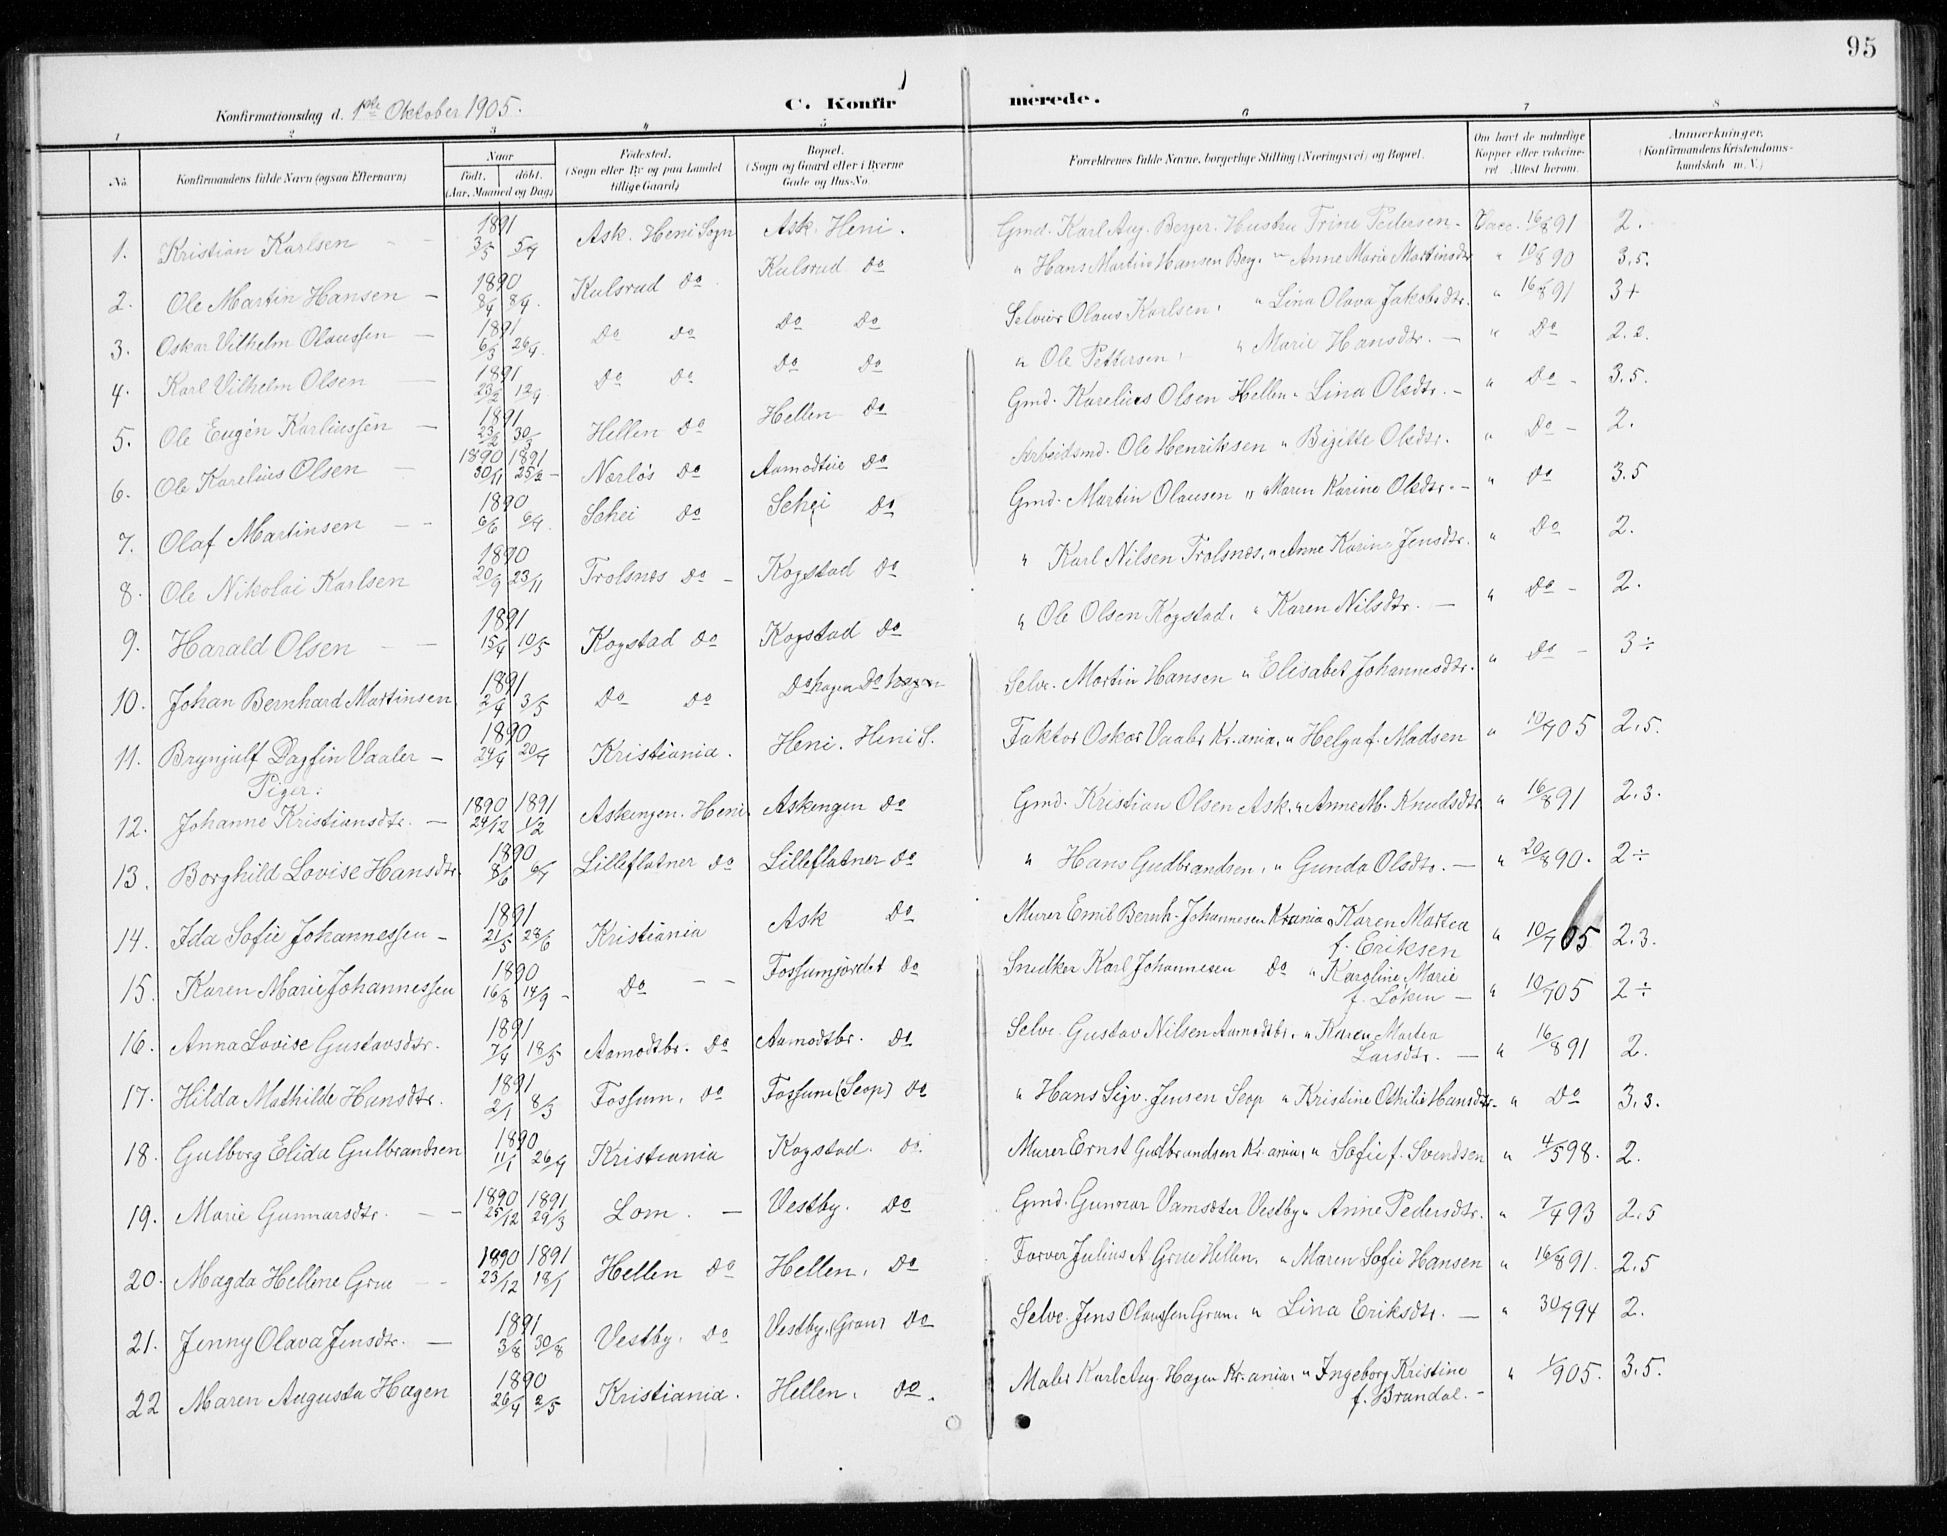 95
Konfirmationsdag d. 1ste Oktober 1905.
C. Konfirmerede.
1 2 3 4 5 6 7 8
No.
Konfirmandens fulde Navn (ogsaa Efternavn)
Naar
født. døbt.
(Aar, Maaned og Dag)
Fødested.
(Sogn eller By og paa Landet
tillige Gaard)
Bopæl.
(Sogn og Gaard eller i Byerne
Gade og Hus-No.
Forældrenes fulde Navne, borgerlige Stilling (Næringsvei) og Bopæl.
Om havt de naturlige
Kopper eller vakcine-
ret. Attest herom.
Anmærkninger.
(Konfirmandens Kristendoms-
kundskab m. V.)
1. Kristian Karlsen - - 1891 3/5 5/9 Ask. Heni Sogn Ask. Heni. Gmd. Karl Aug. Berger. Hustru Trine Pedersen. Vacc. 16/8 91 2.
2. Ole Martin Hansen - 1890 8/4 8/9. Kulsrud Do. Kulsrud Do " Hans Martin Hansen Berg. " Anne Marie Martinsdtr " 10/8 90 3,5.
3. Oskar Vilhelm Olaussen - 1891 6/3 26/4. Do Do Do Do Selveier Olaus Karlsen, " Lina Olava Jakobsdtr. " 16/8 91 3+
4. Karl Vilhelm Olsen - 1891 23/2 12/4 Do Do Do Do " Ole Pettersen, " Marie Hansdtr. - " Do 2.2.
5. Ole Eugén Karliussen - 1891 23/2 30/3 Hellen Do Hellen Do Gmd. Karelius Olsen Hellen " Lina Olsdtr. - " Do - 3.5.
6. Ole Karelius Olsen - 1890 30/11 1891 25/2 - Nærløs Do Aamodteie Do Arbeidsmd. Ole Henriksen " Bigitte Olsdtr. " Do - 2.
7. Olaf Martinsen - - 1890 6/6 6/7. Schei Do Schei Do Gmd. Martin Olausen " Maren Karine Olsdtr. - " Do 3.5
8. Ole Nikolai Karlsen 1890 20/9 23/11 Trolsnæs Do - Kogstad Do " Karl Nilsen Trolsnæs, " Anne Karine Jensdtr. " Do 2.
9. Harald Olsen - - 1891 15/4 10/5 Kogstad Do Kogstad Do " Ole Olsen Kogstad, " Karen Nilsdtr. - " Do - 2.
10. Johan Bernhard Martinsen 1891 2/4 3/5 Do Do Do hagen Do Selve. Martin Hansen " Elisabet Johannesdtr. " Do - 3÷
11. Brynjulf Dagfin Vaaler - 1890 24/4 20/7 Kristiania. Heni. Heni S. Faktor Oskar Vaaler Kr.ania, " Helga f. Madsen " 10/7 05 2,5.
Piger:
12. Johanne Kristiansdtr. - 1890 24/12 1891 1/2 Askengen. Heni. Askengen Do Gmd. Kristian Olsen Ask. " Anne M. Knudsdtr " 16/8 91 2.3.
13. Borghild Lovise Hansdtr. 1890 8/6 6/7 Lilleflatner Do Lilleflatner Do " Hans Gudbrandsen, " Gunda Olsdtr. - " 20/8 90. 2÷
14. Ida Sofie Johannessen - 1891 21/5 28/6 Kristiania Ask Do Murer Emil Bernh. Johannesen Kr.ania " Karen Martea
f. Eriksen " 10/7 05 2.3.
15. Karen Marie Johannessen 1890 16/8 14/9 - Do - - Fossumjordet Do Snedker Karl Johannesen Do " Karoline Marie
f. Løken - " 10/7 05 2÷
16. Anna Lovise Gustavsdtr. 1891 7/4 18/5 Aamodtsbr. Do Aamodtsbr. Do Selve. Gustav Nilsen Aamodtsbr. " Karen Martea
Larsdtr. - " 16/8 91 2.
17. Hilda Mathilde Hansdtr. 1891 2/1 8/3 Fossum, Do Fossum (Seop) Do " Hans Sigv. Jensen Seop " Kristine Othilie Hansdtr. " Do 3.3.
18. Gulborg Elida Gulbrandsen 1890 11/1 26/4 Kristiania Kogstad. do. Murer Ernst Gudbrandsen Kr.ania, " Sofie f. Svendsen " 4/5 98. 2.
19. Marie Gunnarsdtr. - - 1890 25/12 1891 29/3 Lom. - Vestby. Do Gmd. Gunnar Vamsæter Vestby " Anne Pedersdtr. " 7/4 93 2.5
20. Magda Hellene Grue - - 1890 23/12 1891 18/1 Hellen Do Hellen, Do Farver Julius A. Grue Hellen, " Maren Sofie Hansen " 16/8 91. 2.5
21. Jenny Olava Jensdtr. - 1891 3/8 30/8 Vestby, Do Vestby, (Gran) Do Selve. Jens Olaussen Gran, " Lina Eriksdtr. - " 30/9 94 2.
22 Maren Augusta Hagen 1890 26/4 2/5 Kristiania. Hellen, do. Maler Karl Aug. Hagen Kr.ania, " Ingeborg Kristine
f. Brandal. - " 905. 3.5.